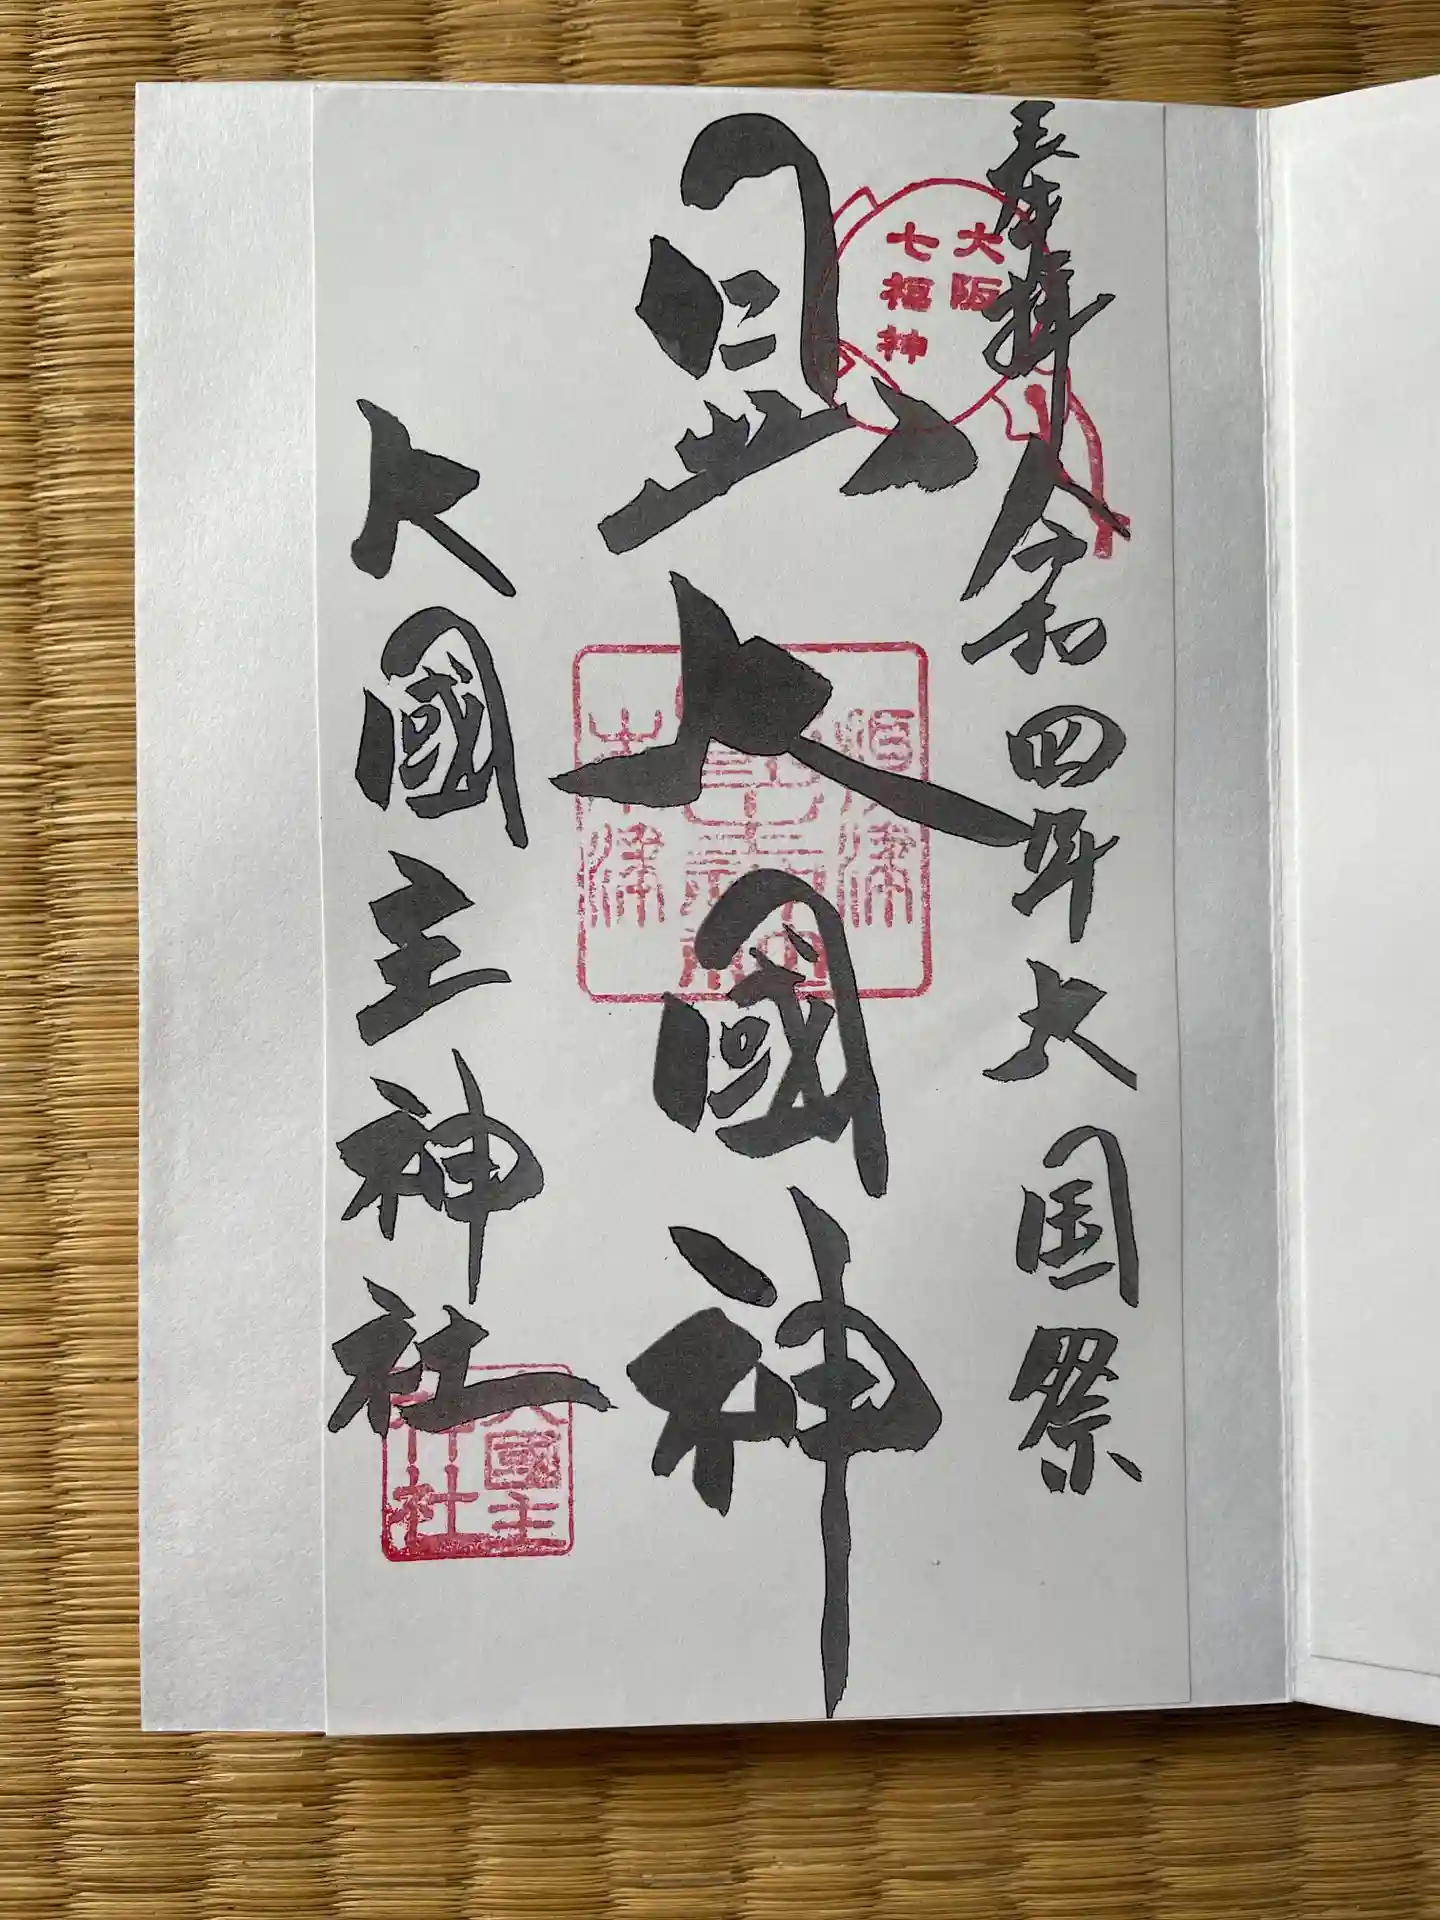 奉拝 令和四年大国祭
大阪
七福神
大國神
大國主神社
大國主
神社